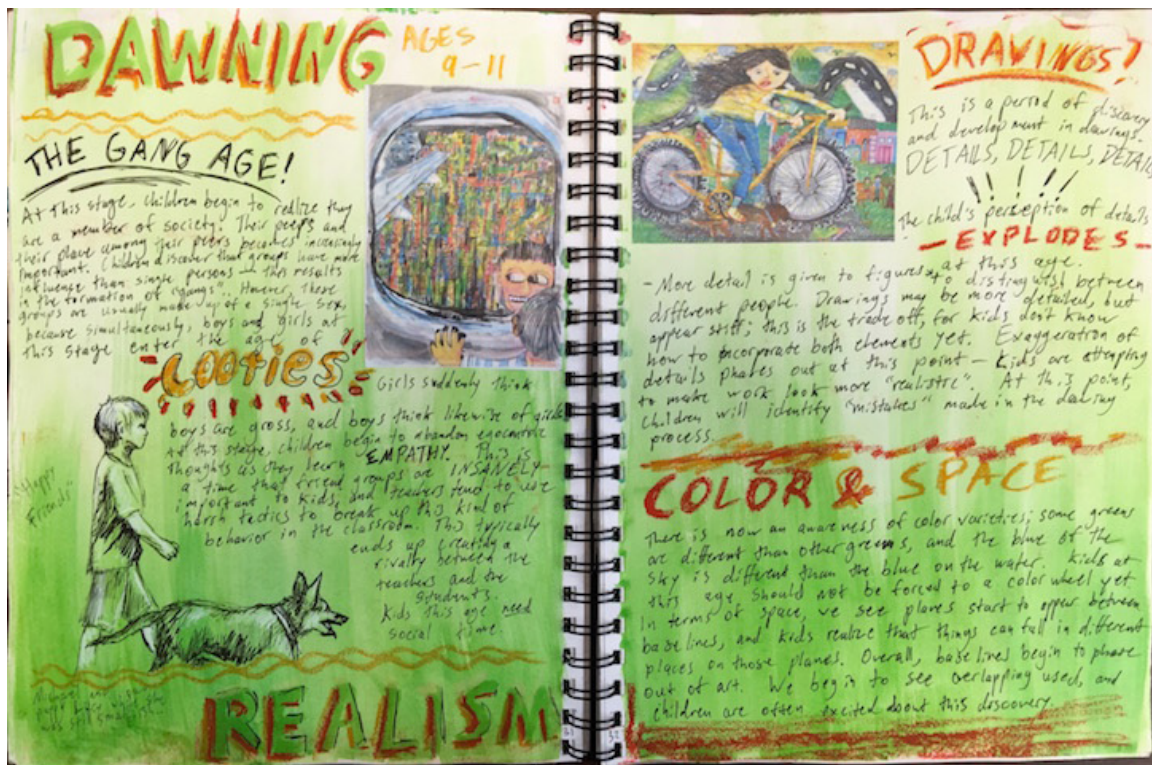 DAWNING
AGES
9-11
THE GANG AGE!
At this stage, children begin to realize they
are a member of society. Their peeps and
their place among their peers becomes increasingly
important. Children discover that groups have more
influence than single persons - this results
in the formation of "gangs". However, these
groups are usually made up of a single sex,
because simultaneously, boys and girls at
this stage enter the age of
COOTIES
Girls suddenly think
boys are gross, and boys think likewise of girls
At this stage, children begin to abandon egocentric
thoughts as they learn EMPATHY. This is
a time that friend groups are INSANELY
important to kids, and teachers tend to use
harsh tactics to break up this kind of
behavior in the classroom. This typically
ends up creating a
rivalry between the
teachers and the
students.
Kids this age need
social time.
"Happy
Friends"
REALISM
31
DRAWINGS!
This is a period of discovery
and development in drawings.
DETAILS, DETAILS, DETAILS
!! ! ! !
The child's perception of details
- EXPLODES -
at this age.
- More detail is given to figures to distinguish between
different people. Drawings may be more detailed, but
appear stiff; this is the trade off, for kids don't know
how to incorporate both elements yet. Exaggeration of
details phases out at this point - kids are attempting
to make work look more "realistic". At this point,
children will identify "mistakes" made in the drawing
process.
COLOR & SPACE
There is now an awareness of color varieties; some greens
are different than other greens, and the blue of the
sky is different than the blue on the water. Kids at
this age should not be forced to a color wheel yet
In terms of space, we see planes start to apper between
base lines, and kids realize that things can fall in different
places on those planes. Overall, base lines begin to phase
out of art. We begin to see overlapping used, and
children are often excited about this discovery.
32